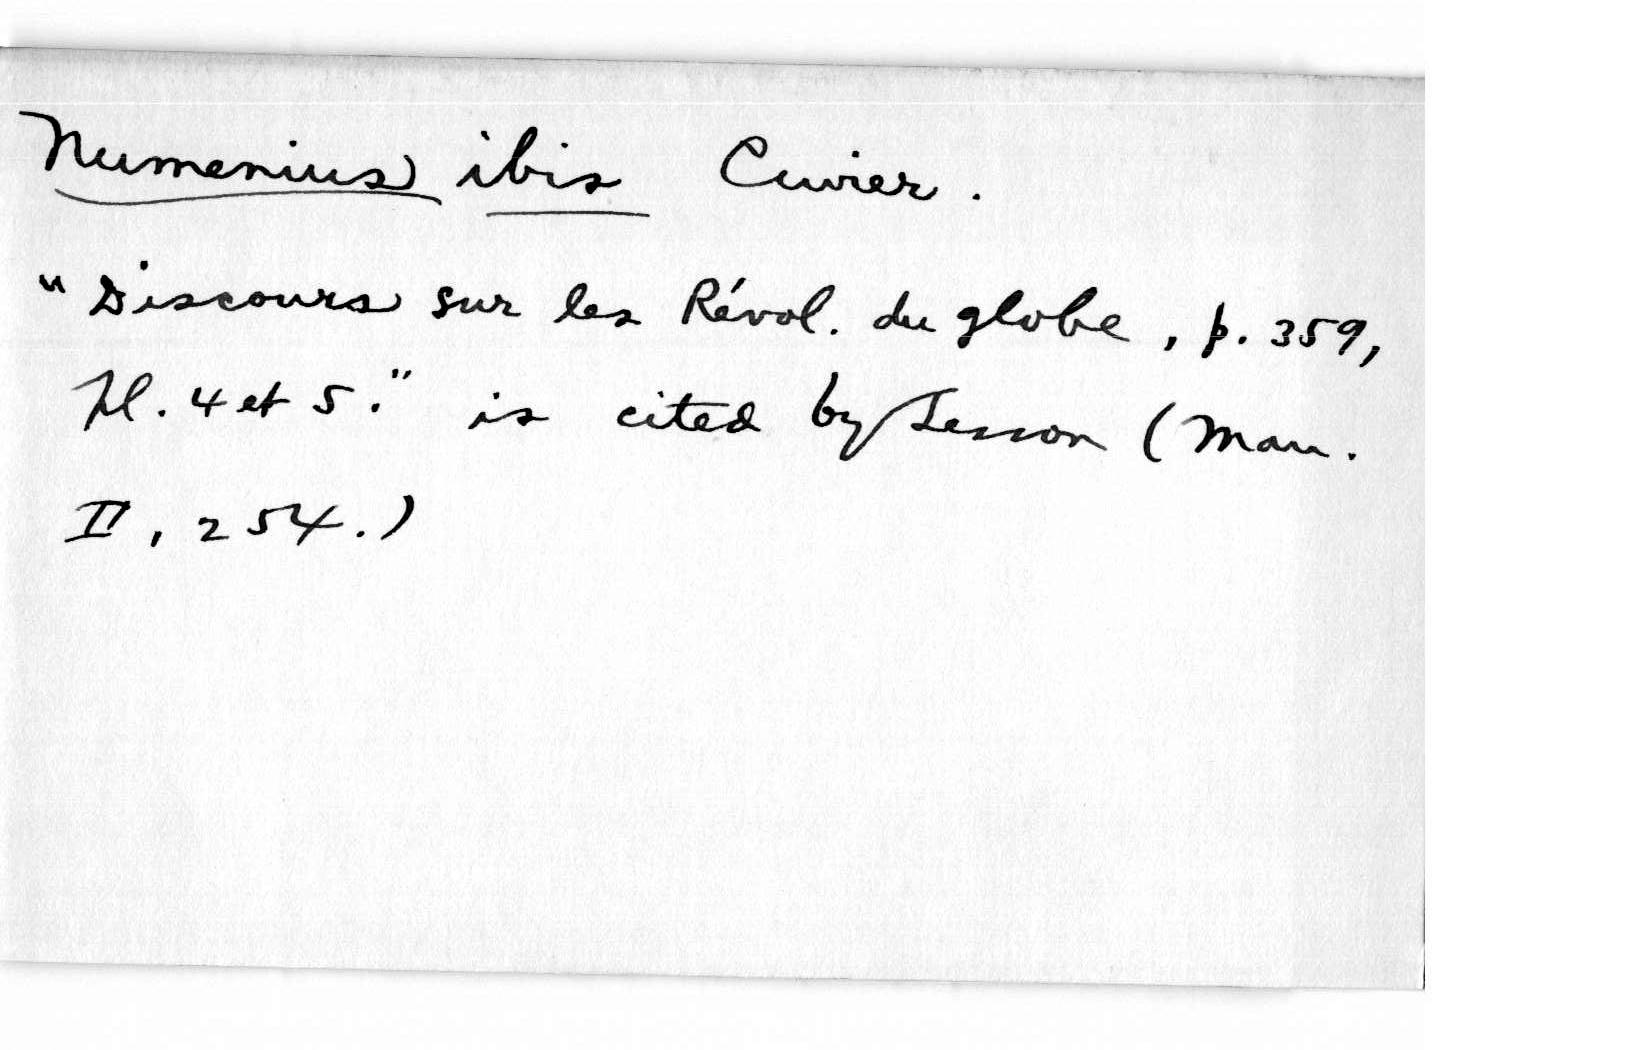 Numenius ibis Cuvier.
"Discours sur les Révol. du globe, p. 359,
pl. 4 et 5." is cited by Lesson (Man.
II, 254.)